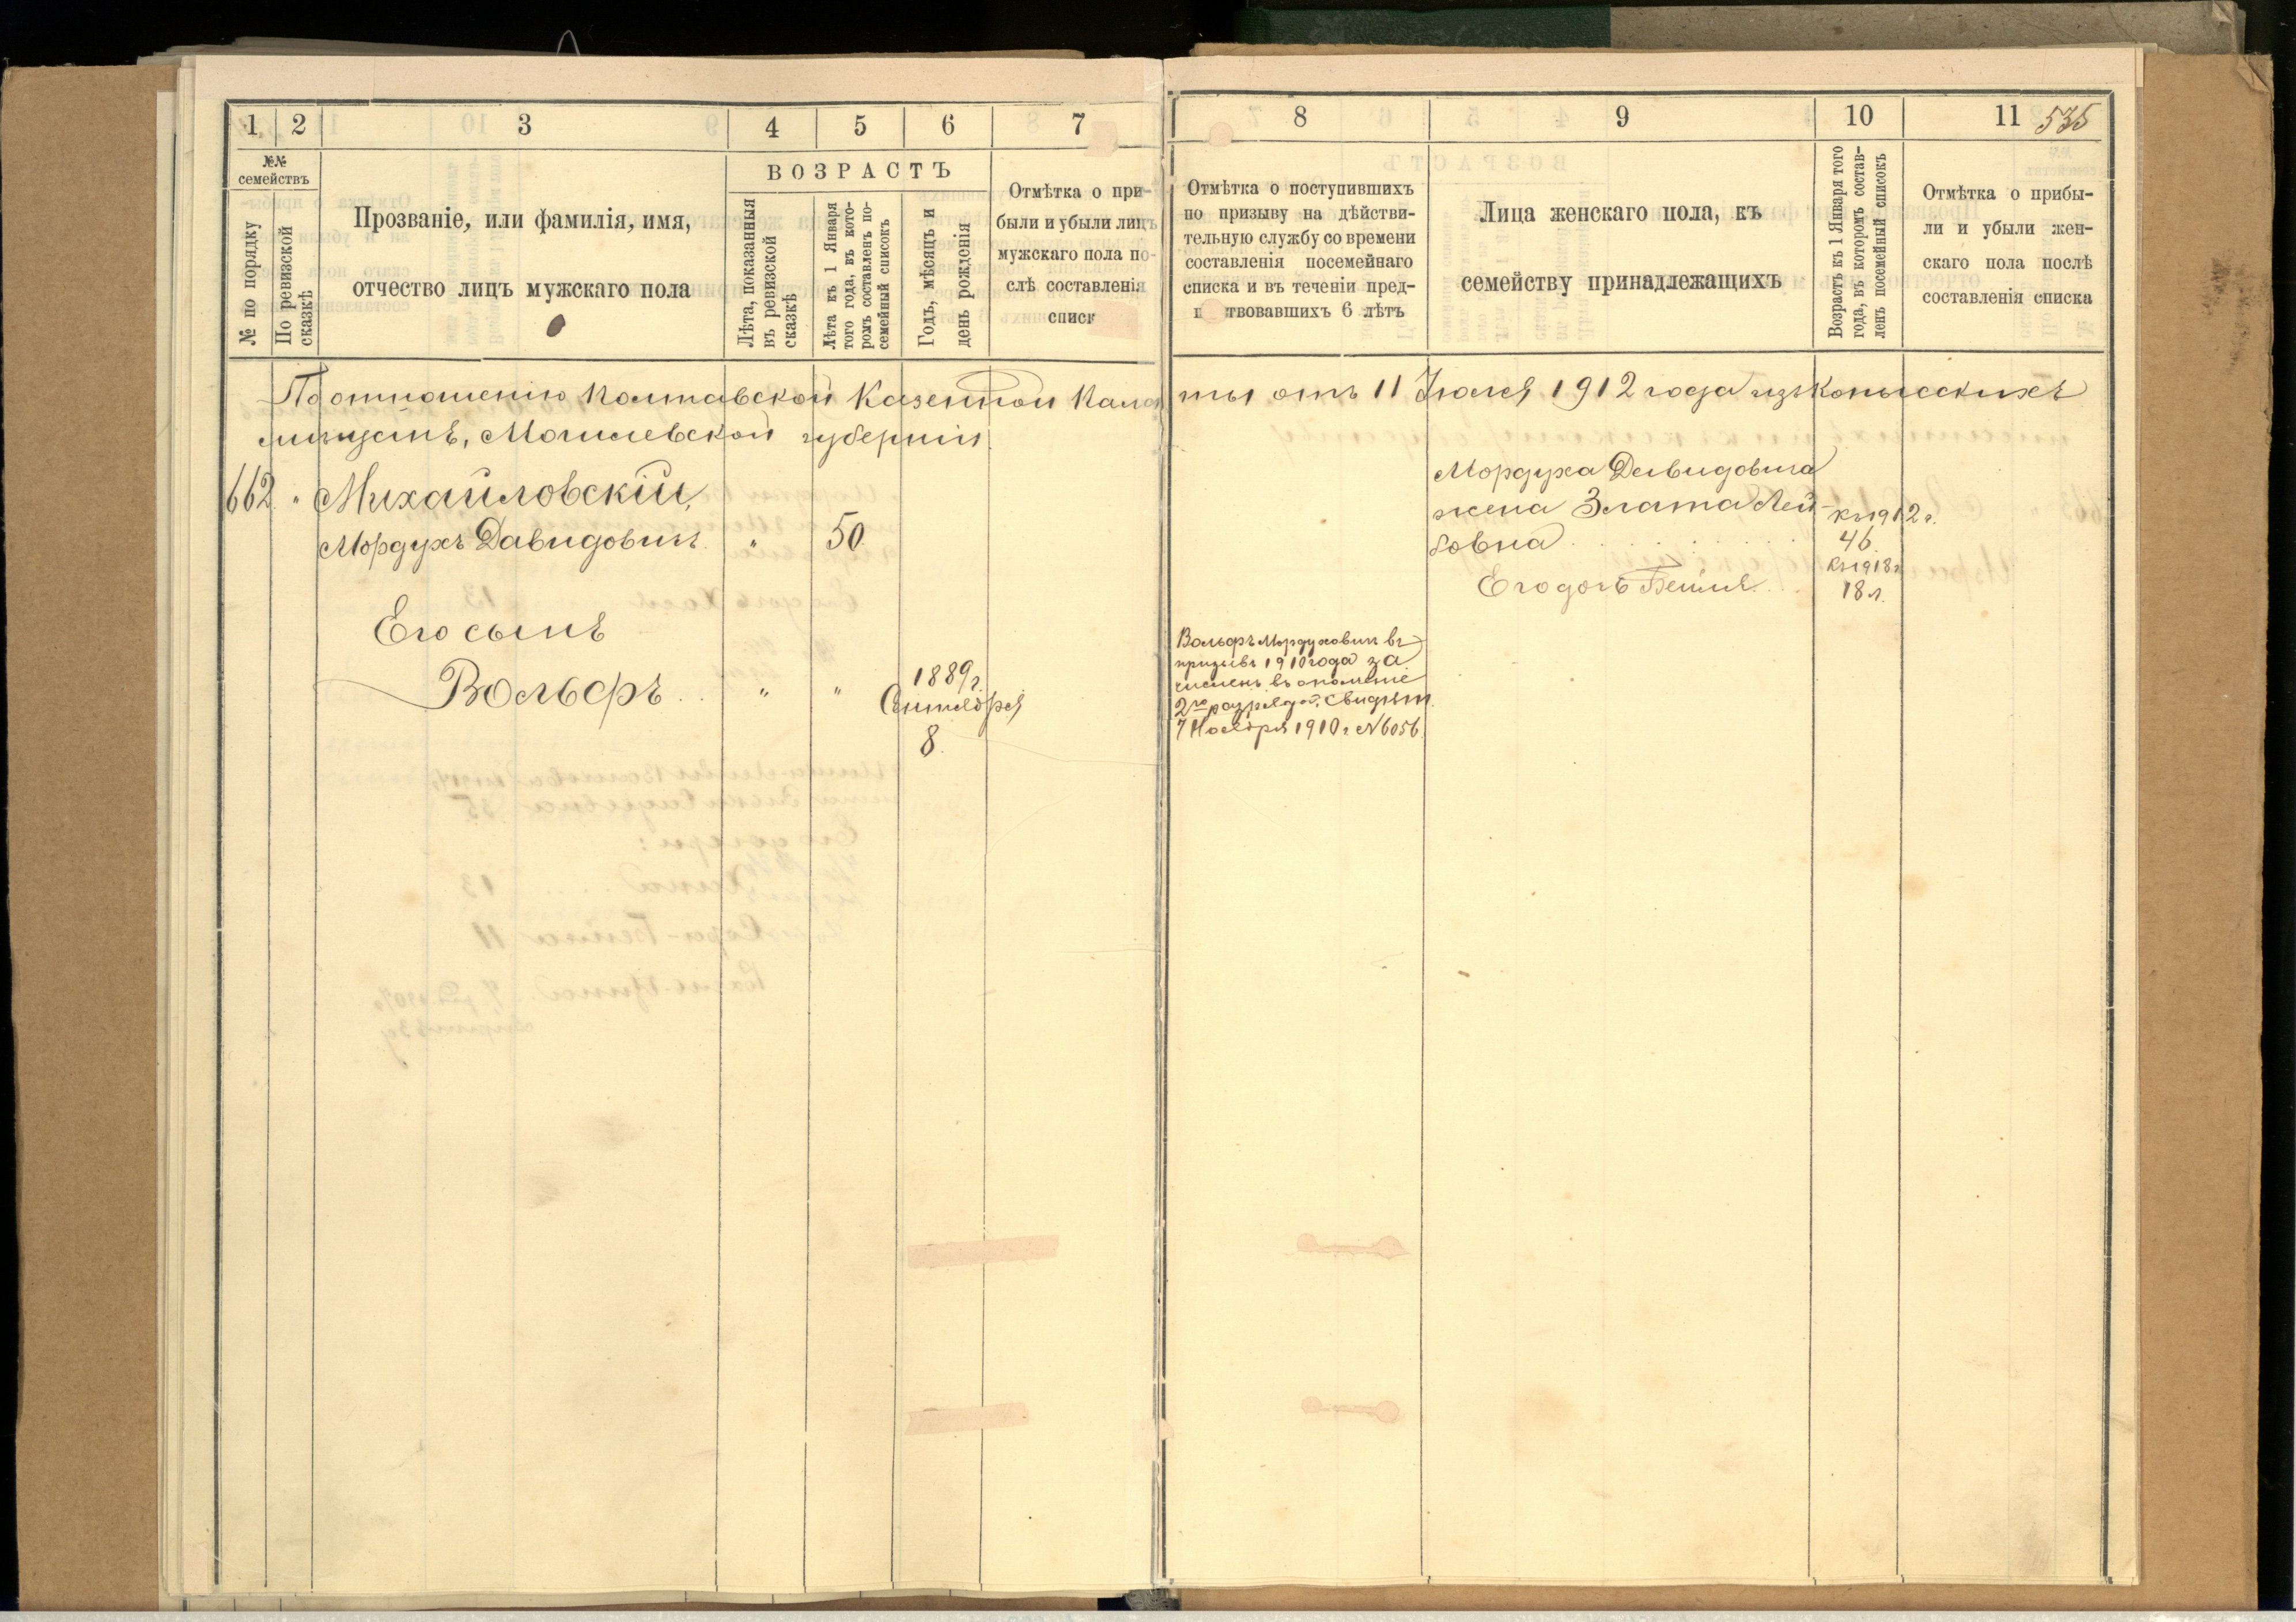 1 2 3 4 5 6 7
№№ семействъ
№ по порядку
По ревизской сказкѣ
Прозваніе, или фамилія, имя,
отчество лицъ мужскаго пола
ВОЗРАСТЪ
Лѣта, показанныя
въ ревизской
сказкѣ
Лѣта къ 1 Января
того года, въ кото-
ромъ составленъ по-
семейный списокъ
Годъ, мѣсяцъ и
день рожденія
Отмѣтка о при-
были и убыли лицъ
мужскаго пола по-
слѣ составленія
списк
8 9 10 11 535
Отмѣтка о поступившихъ
по призыву на дѣйстви-
тельную службу со времени
составленія посемейнаго
списка и въ теченіи пред-
п ствовавшихъ 6 лѣтъ
Лица женскаго пола, къ
семейству принадлежащихъ
Возрастъ къ 1 Января того
года, въ которомъ состав-
ленъ посемейный списокъ
Отмѣтка о прибы-
ли и убыли жен-
скаго пола послѣ
составленія списка
По отношенію Полтавской Казенной Пала ты отъ 11 Іюля 1912 года изъ Копысскихъ
мѣщанъ, Могилевской губерніи.
662 " Михайловскій,
Мордухъ Давидовичъ " 50
Его сынъ
Вольфъ " " 1889 г.
Сентября
8.
Вольфъ Мордуховичъ въ
призывъ 1910 года за
численъ въ ополченіе
2го разряда, Свидѣт.
7 Ноября 1910 г. № 6056
Мордуха Давидовича
жена Злата Лей-
бовна
къ 1912 г.
46.
Его дочь Бейля
къ 1918 г.
18 л.